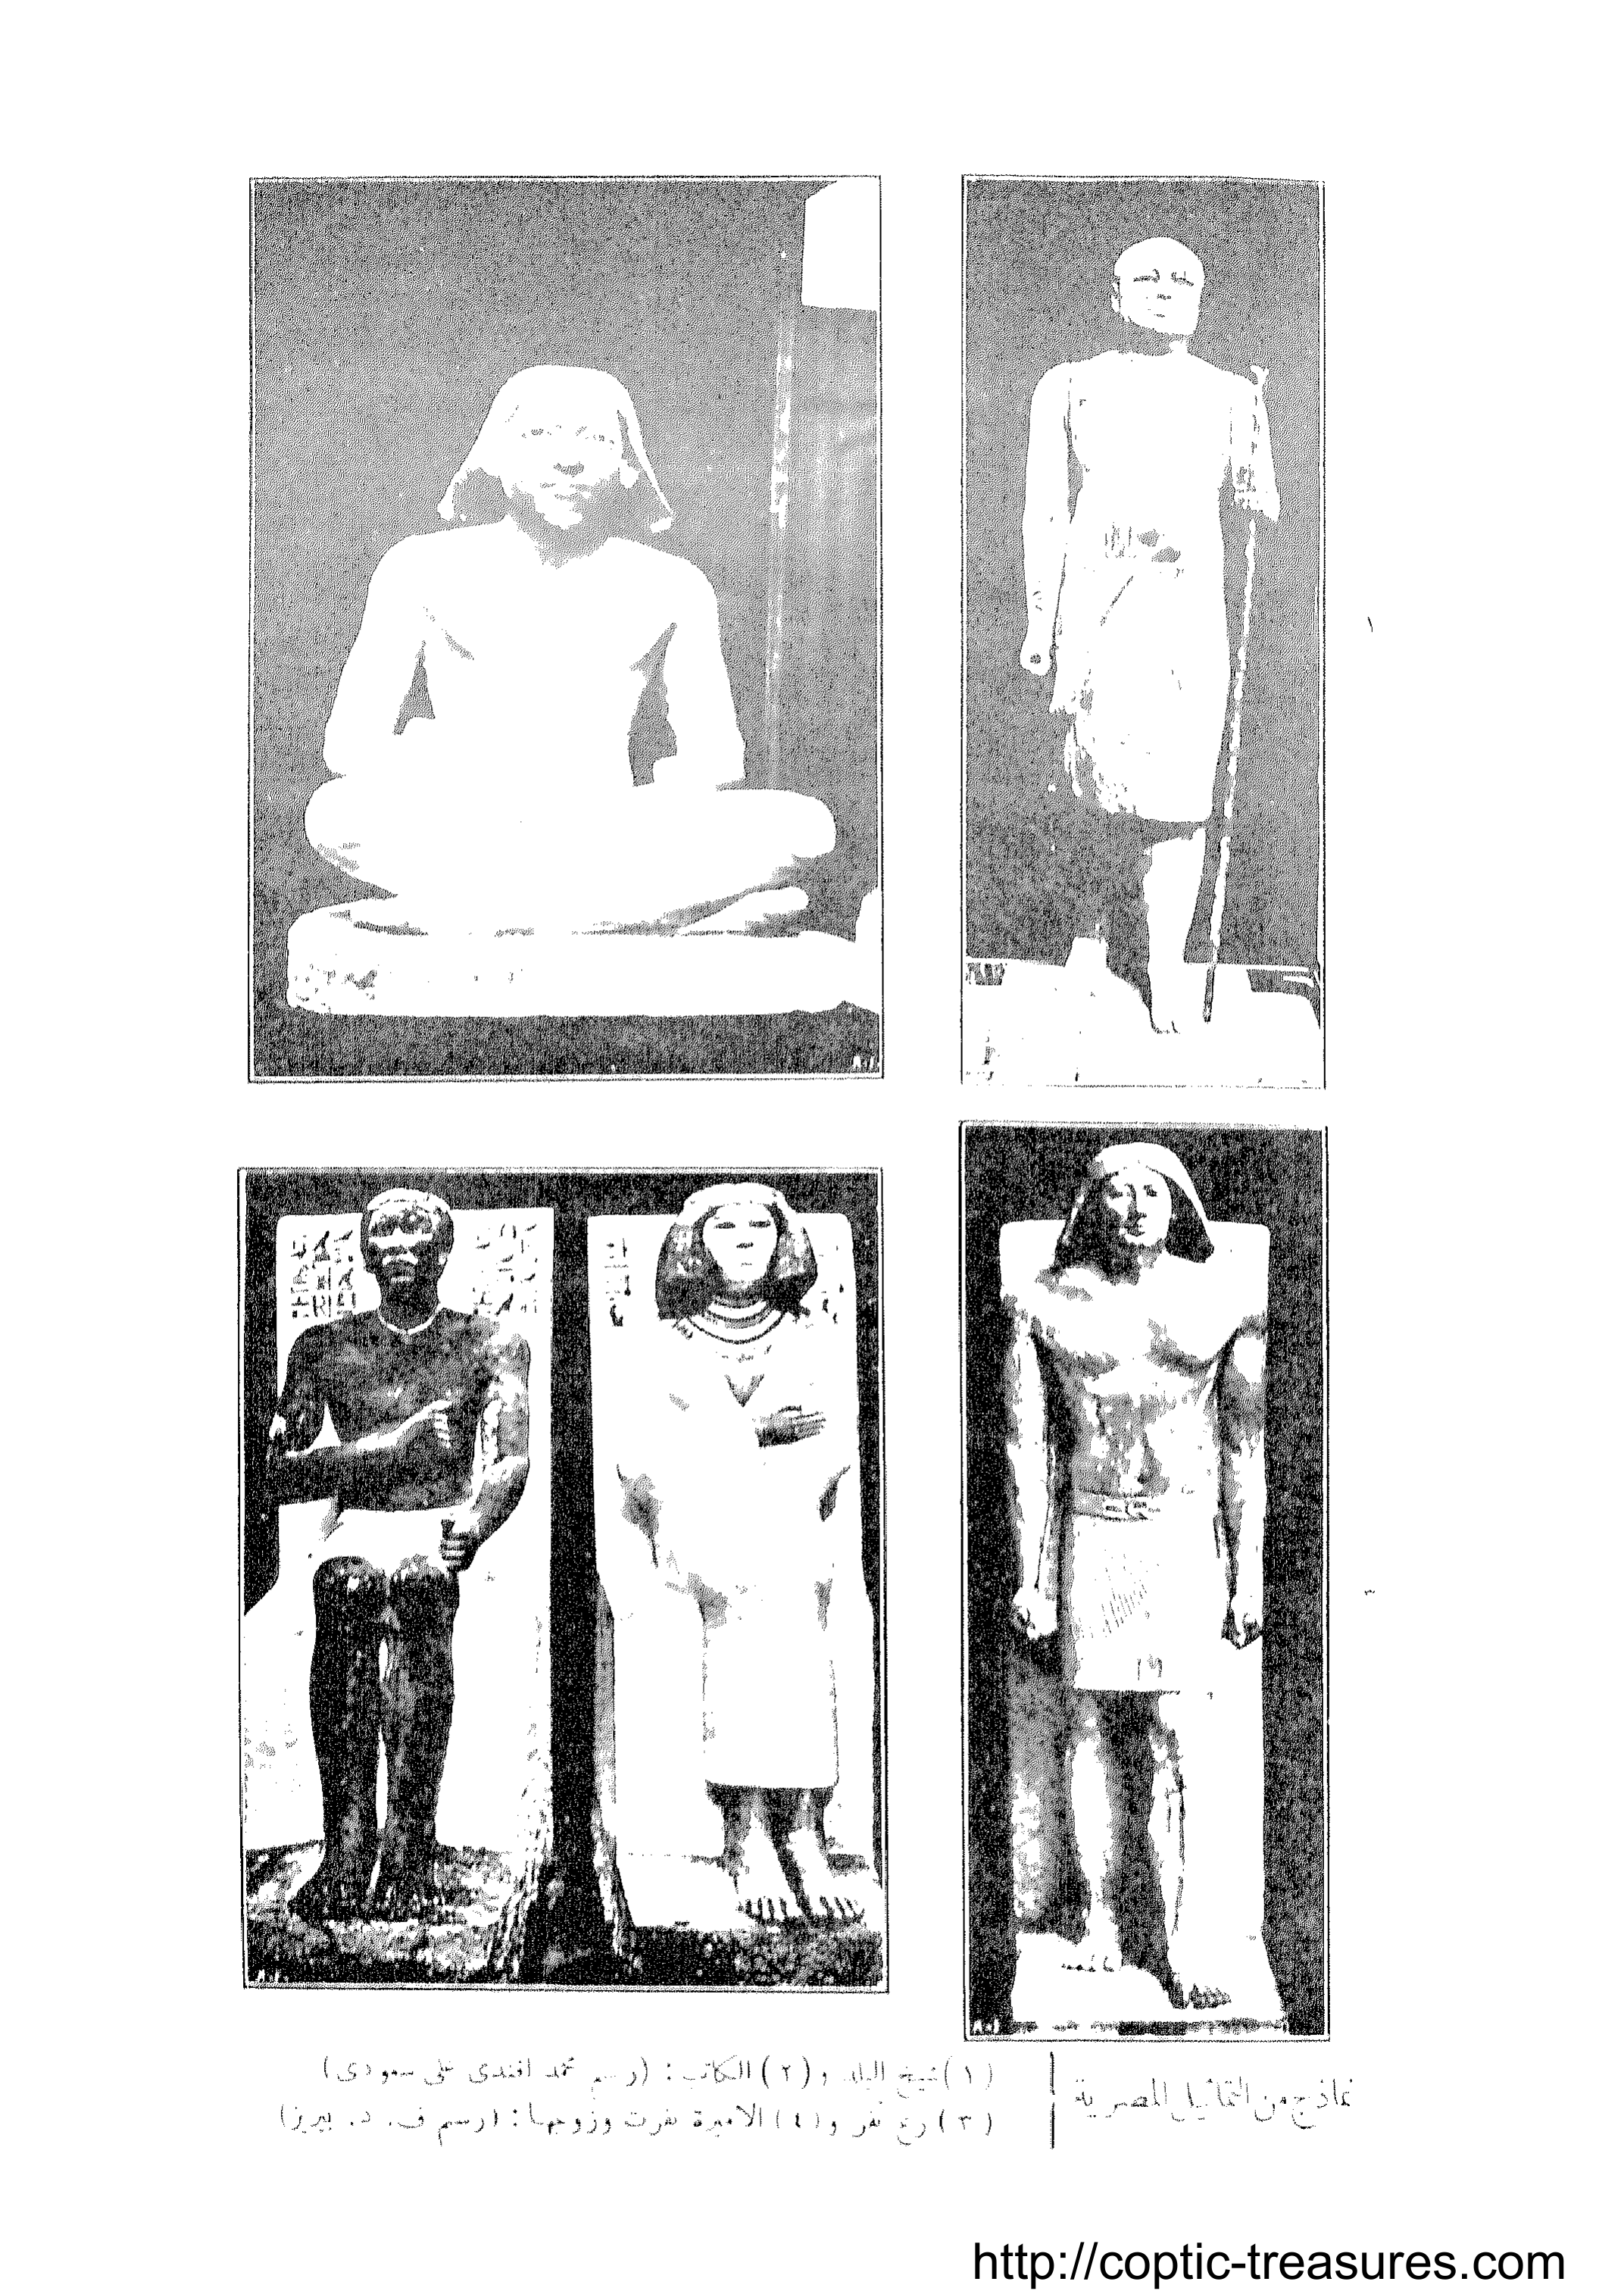 ١
٣
نماذج من التماثيل المصرية
(١) شيخ البلد و (٢) الكاتب : (رسم محمد افندى على سعودى)
(٣) رع نفر و (٤) الاميرة نفرت وزوجها : (رسم ف. د. بيريز)
http://coptic-treasures.com